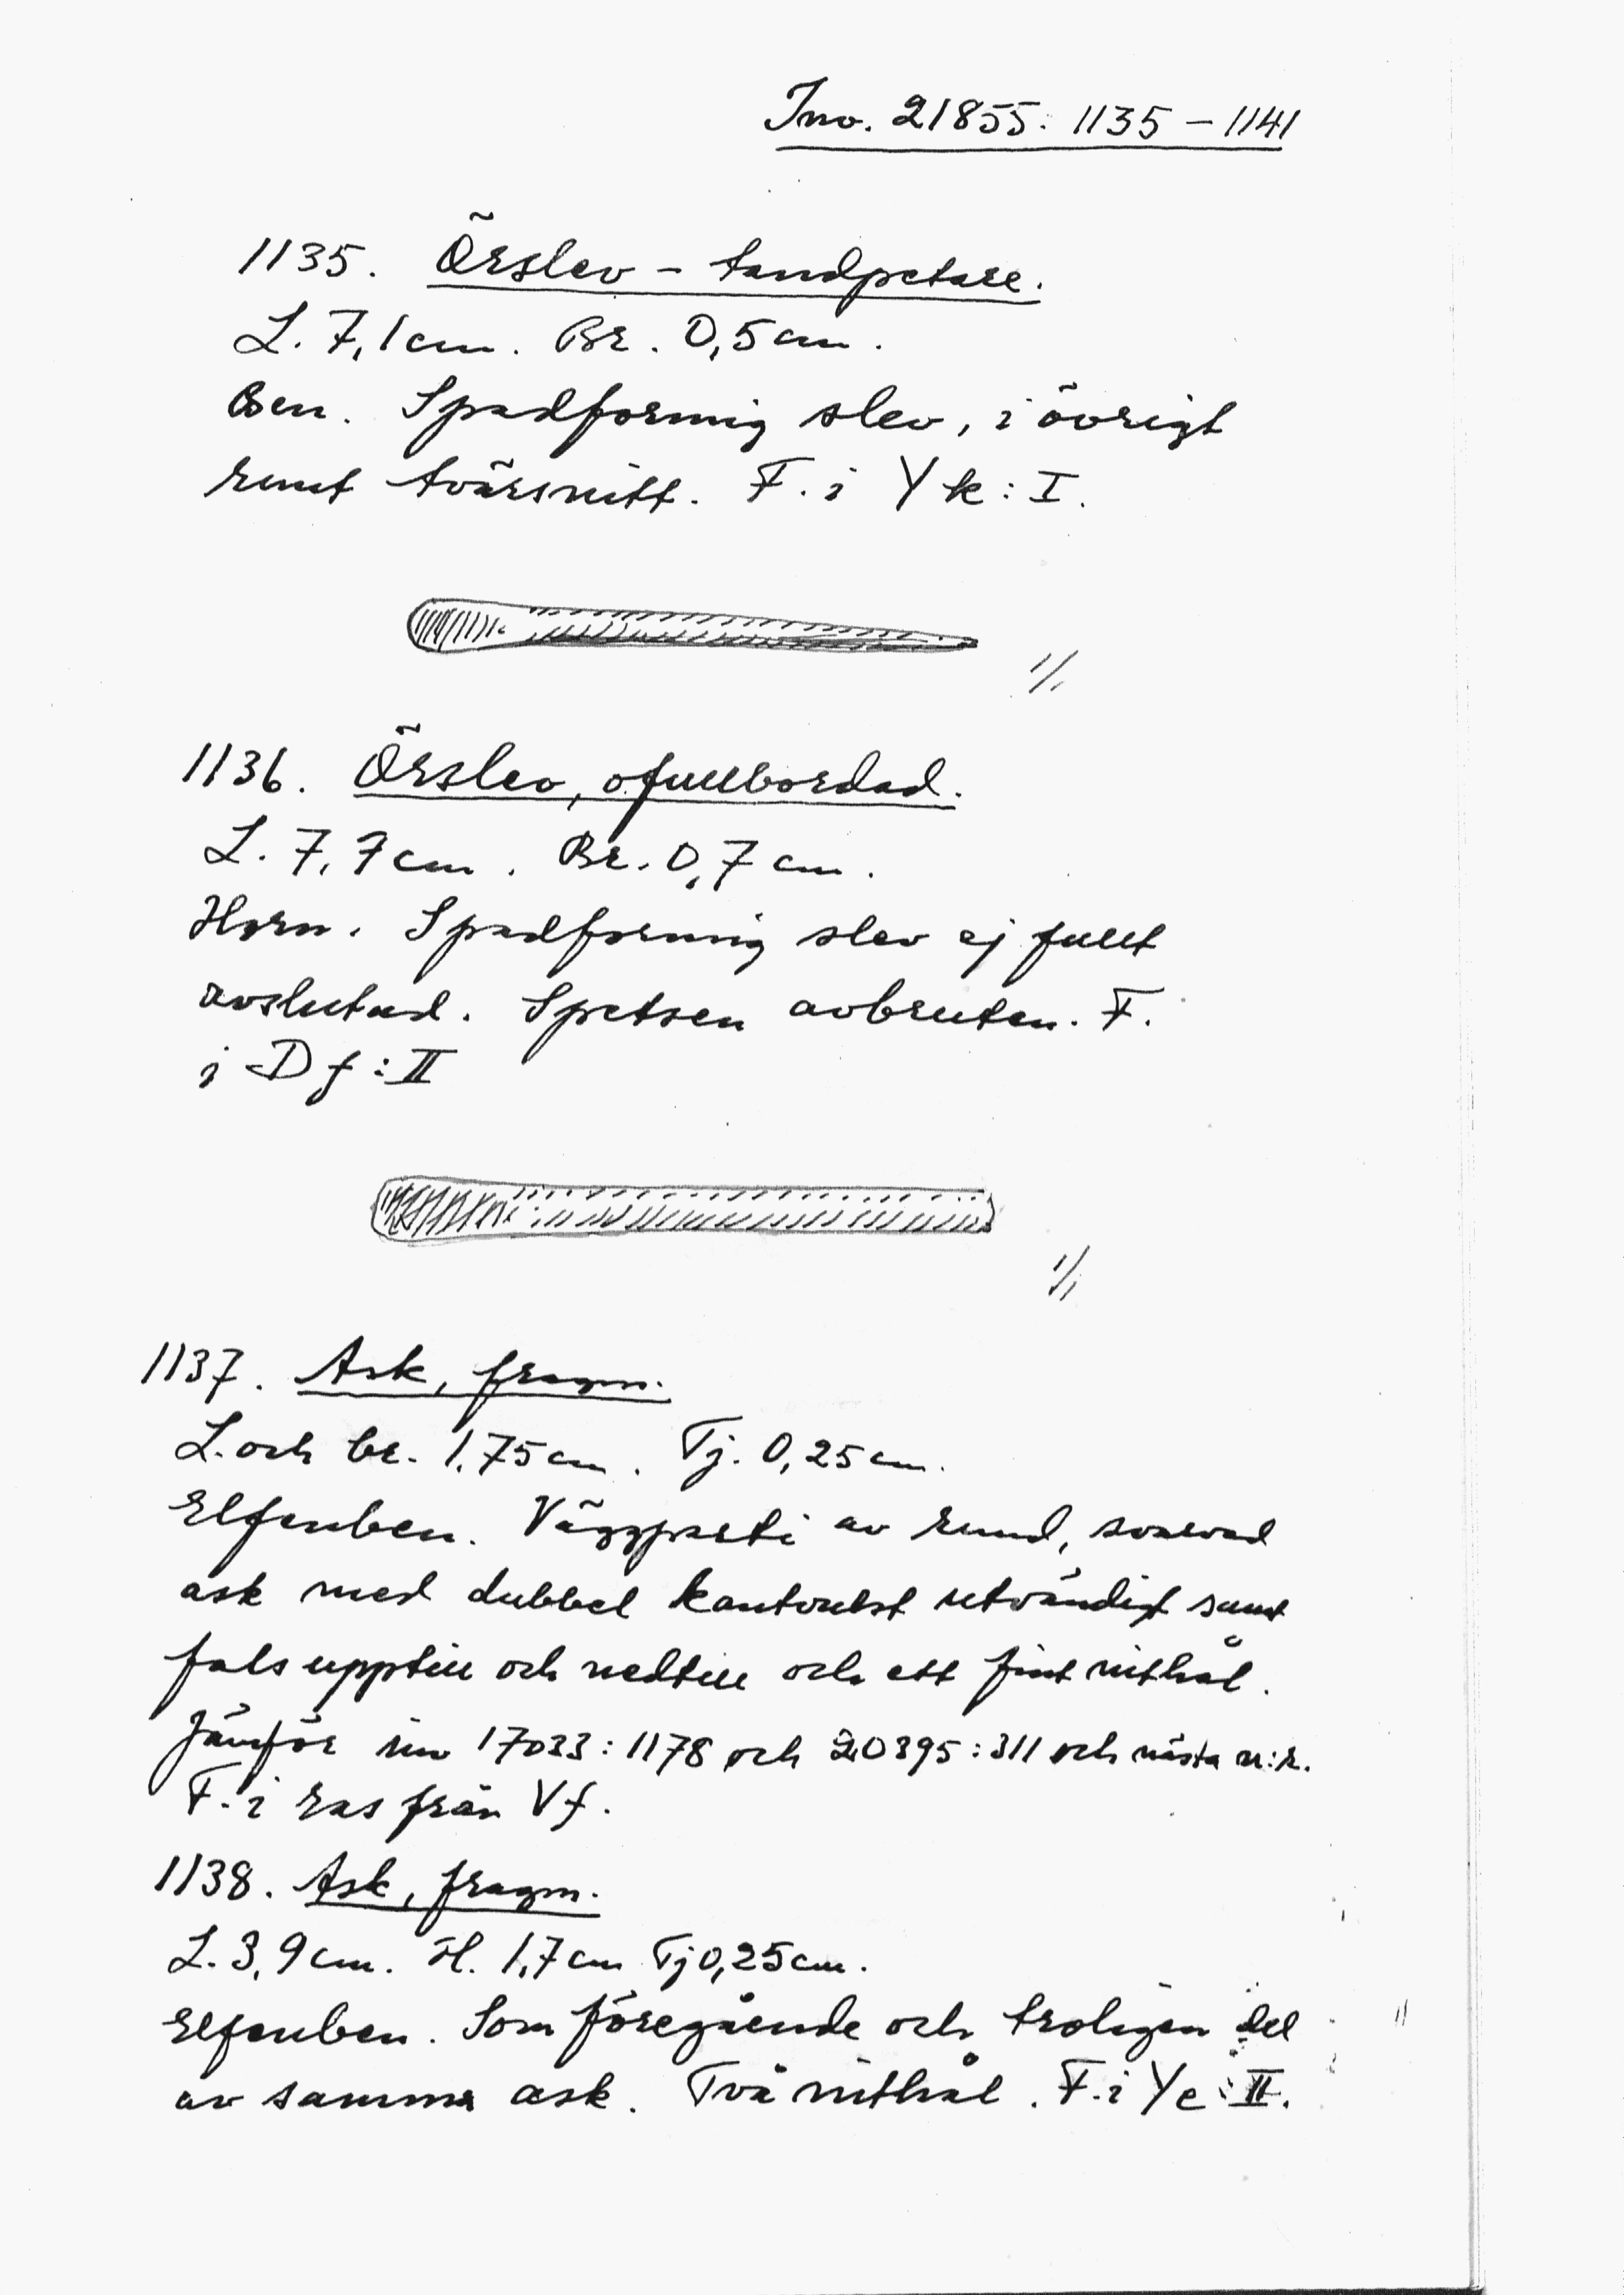 Inv. 21855: 1135 – 1141
1135. Örslev – tandpetare.
L. 7,1 cm. Br. 0,5 cm.
Ben. Spadformig slev, i övrigt
runt tvärsnitt. F. i Yk: I.
1/1
1136. Örslev, ofullbordad.
L. 7,7 cm. Br. 0,7 cm.
Horn. Spadformig slev ej fullt
avslutad. Spetsen avbruten. F.
i Df: II
1/1
1137. Ask, fragm.
L. och br. 1,75 cm. Tj. 0,25 cm.
Elfenben. Väggparti av rund, svarvad
ask med dubbel kantvulst utvändigt samt
fals upptill och nedtill och ett fint nithål.
Jämför inv 17033: 1178 och 20395: 311 och nästa n:r.
F. i ras från Vf.
1138. Ask, fragm.
L. 3,9 cm. H. 1,7 cm Tj 0,25 cm.
Elfenben. Som föregående och troligen del
av samma ask. Två nithål. F. i Ye: II.